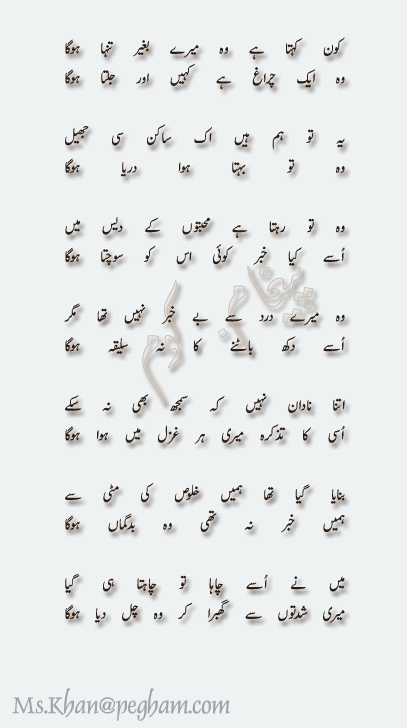 کون کہتا ہے وہ میرے بغیر تنہا ہوگا
وہ ایک چراغ ہے کہیں اور جلتا ہوگا
یہ تو ہم ہیں اک ساکن سی جھیل
وہ تو بہتا ہوا دریا ہوگا
وہ تو رہتا ہے محبتوں کے دیس میں
اُسے کیا خبر کوئی اس کو سوچتا ہوگا
وہ میرے درد سے بے خبر نہیں تھا مگر
اُسے دکھ بانٹنے کا نہ سلیقہ ہوگا
اتنا نادان نہیں کہ سمجھ بھی نہ سکے
اُسی کا تذکرہ میری ہر غزل میں ہوا ہوگا
بنایا گیا تھا ہمیں خلوص کی مٹی سے
ہمیں خبر نہ تھی وہ بدگماں ہوگا
میں نے اُسے چاہا تو چاہتا ہی گیا
میری شدتوں سے گھبرا کر وہ چل دیا ہوگا
پیغام ڈاٹ کوم
Ms.Khan@pegham.com